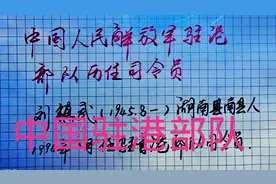 中国人民解放军驻港
部队历任司令员
刘镇武(1945.8—)湖南县南县人
中国驻港部队
1994年
司令员.